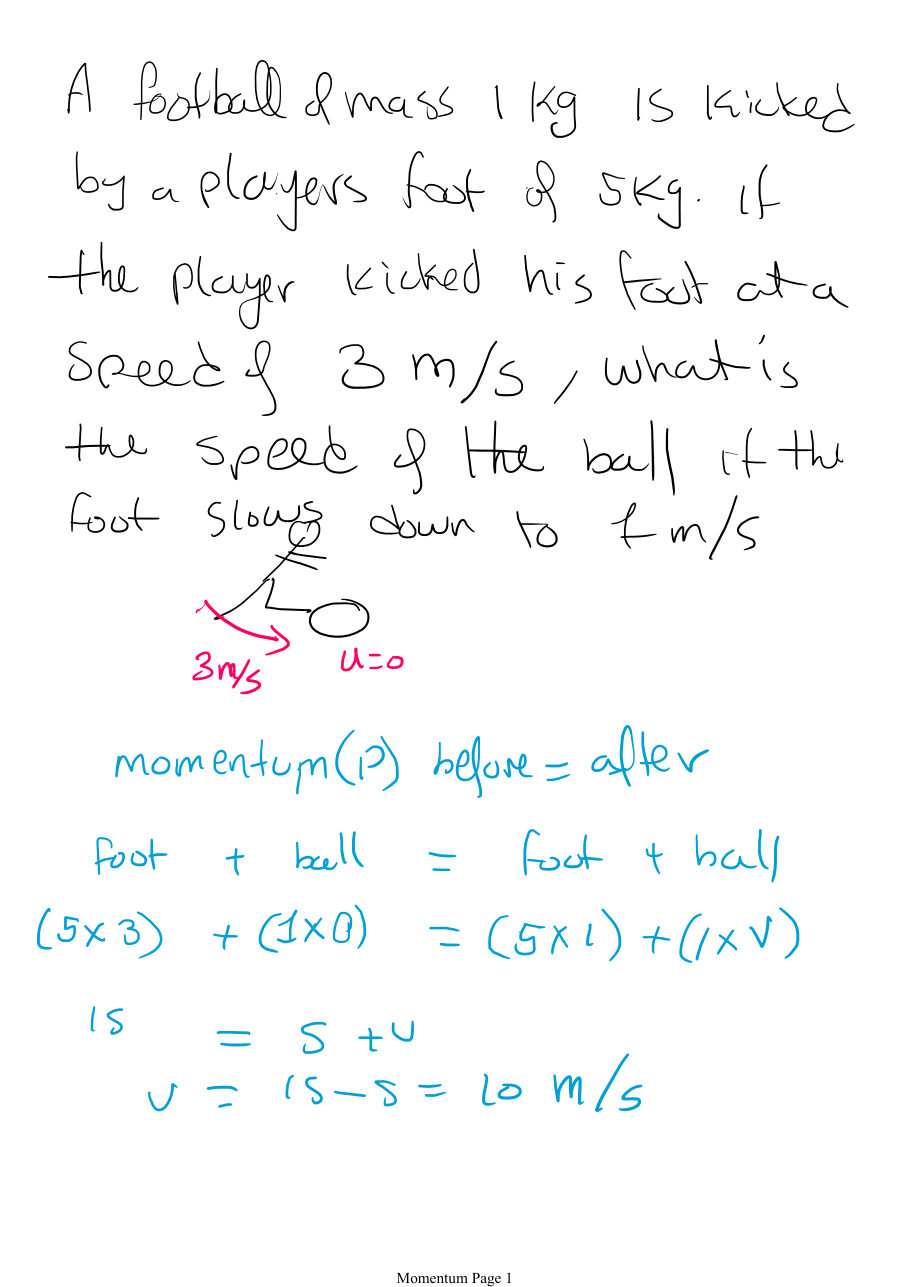 A football of mass 1 kg is kicked
by a players foot of 5kg. if
the player kicked his foot at a
speed of 3 m/s, what is
the speed of the ball if the
foot slows down to 1 m/s
3m/s
u=0
momentum(p) before = after
foot + ball = foot + ball
(5×3) + (1×0) = (5×1) + (1×v)
15 = 5 + v
v = 15 - 5 = 10 m/s
Momentum Page 1